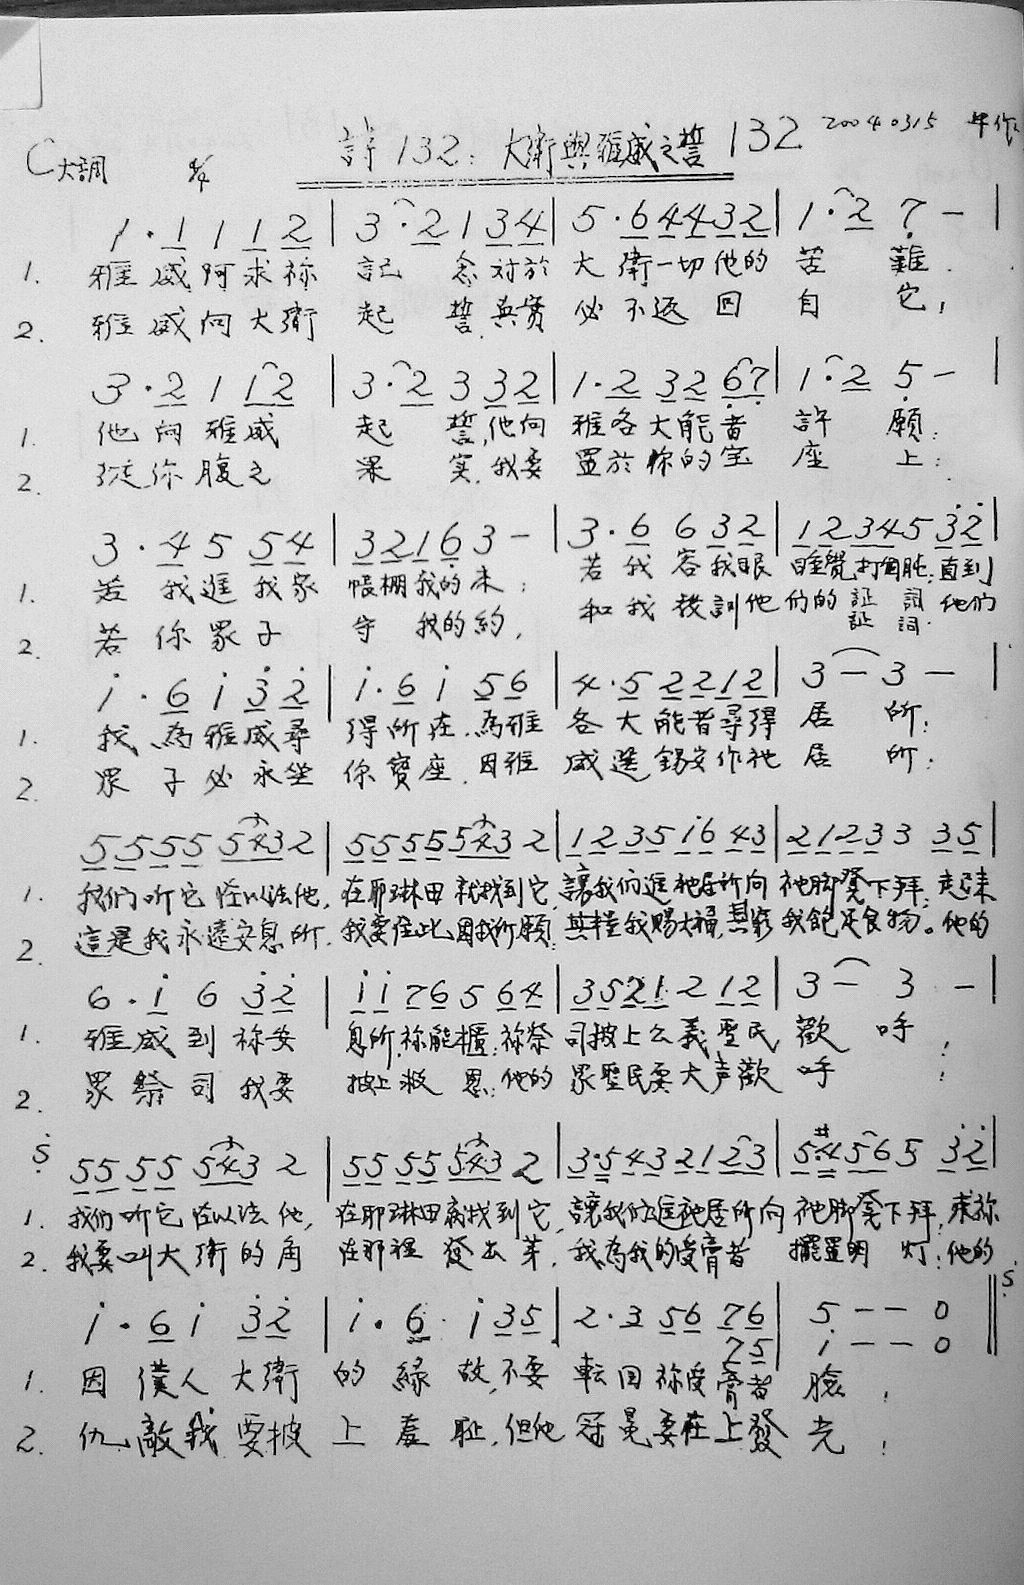 詩132：大衛與雅威之誓 132 20040315
C大調 4/4
1·1 1 1 2 | 3·2 1 3 4 | 5·6 4 4 3 2 | 1·2 7 - |
1. 雅威阿求祢 記念对於 大衛一切他的 苦難.
2. 雅威向大衛 起誓,真實 必不返回 自它,
3·2 1 1 2 | 3·2 3 3 2 | 1·2 3 2 6 7 | 1·2 5 - |
1. 他向雅威 起誓,他向 雅各大能者 許願:
2. 從你腹之 果实,我要 置於你的宝 座上:
3·4 5 5 4 | 3 2 1 6 3 - | 3·6 6 3 2 | 1 2 3 4 5 3 2 |
1. 若我進我家 帳棚我的床; 若我容我眼 睡覺打個盹;直到
2. 若你眾子 守我的約, 和我教訓他 们的証詞 他们
証詞.
i·6 i 3 2 | i·6 i 5 6 | 4·5 2 2 1 2 | 3 - 3 - |
1. 我為雅威尋 得所在.為雅 各大能者尋得 居所;
2. 眾子必永坐 你寶座.因雅 威選錫安作祂 居所;
5 5 5 5 5 4 3 2 | 5 5 5 5 5 4 3 2 | 1 2 3 5 i 6 4 3 | 2 1 2 3 3 3 5 |
1. 我们听它在以法他, 在耶琳田就找到它,讓我们進祂居所向 祂脚凳下拜;起來
2. 這是我永遠安息所. 我要住此因我所願;其糧我賜大福,其窮 我飽足食物。他的
6·i 6 3 2 | i i 7 6 5 6 4 | 3 5 2 1 2 1 2 | 3 - 3 - |
1. 雅威到祢安 息所,祢能櫃;祢祭 司披上公義聖民 歡呼!
2. 眾祭司我要 披上救恩;他的 眾聖民要大声歡 呼!
5 5 5 5 5 4 3 2 | 5 5 5 5 5 4 3 2 | 3·5 4 3 2 1 2 3 | 5·#4 5 6 5 3 2 |
1. 我们听它在以法他, 在耶琳田就找到它,讓我们進祂居所向 祂脚凳下拜;求祢
2. 我要叫大衛的角 在那裡發出芽,我為我的受膏者 擺置明灯;他的
i·6 i 3 2 | i·6·i 3 5 | 2·3 5 6 7 6 | 5 - - 0
7 5 | i - - 0
1. 因僕人大衛 的緣故,不要 転回祢受膏者 臉,
2. 仇敵我要披 上羞耻,但他 冠冕要在上發 光!